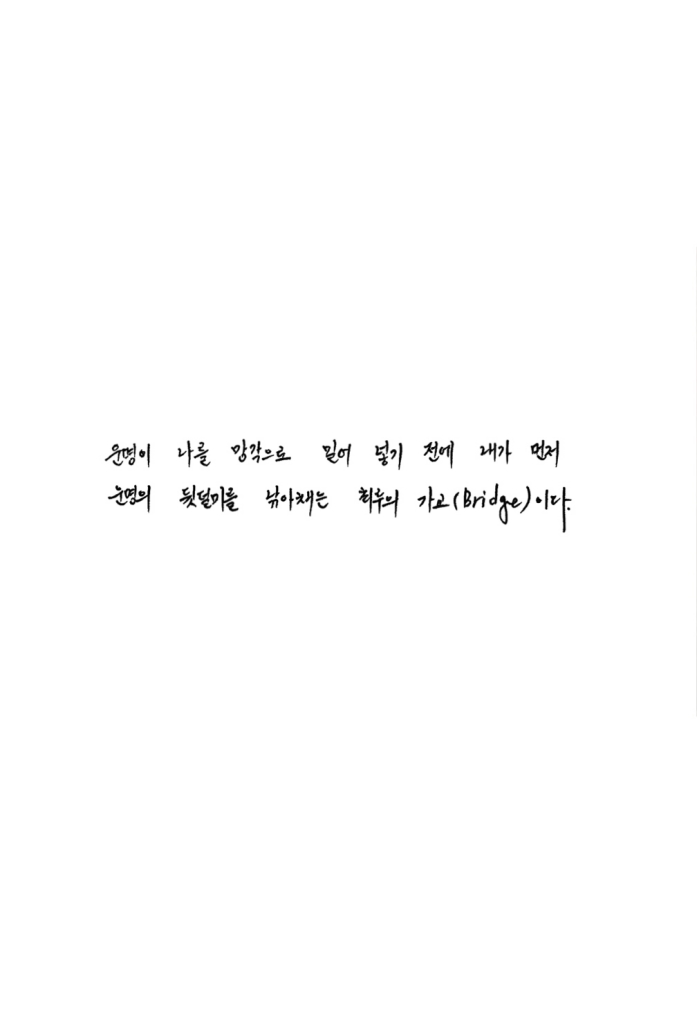 운명이 나를 망각으로 밀어 넣기 전에 내가 먼저
운명의 뒷덜미를 낚아채는 최후의 가교(Bridge)이다.